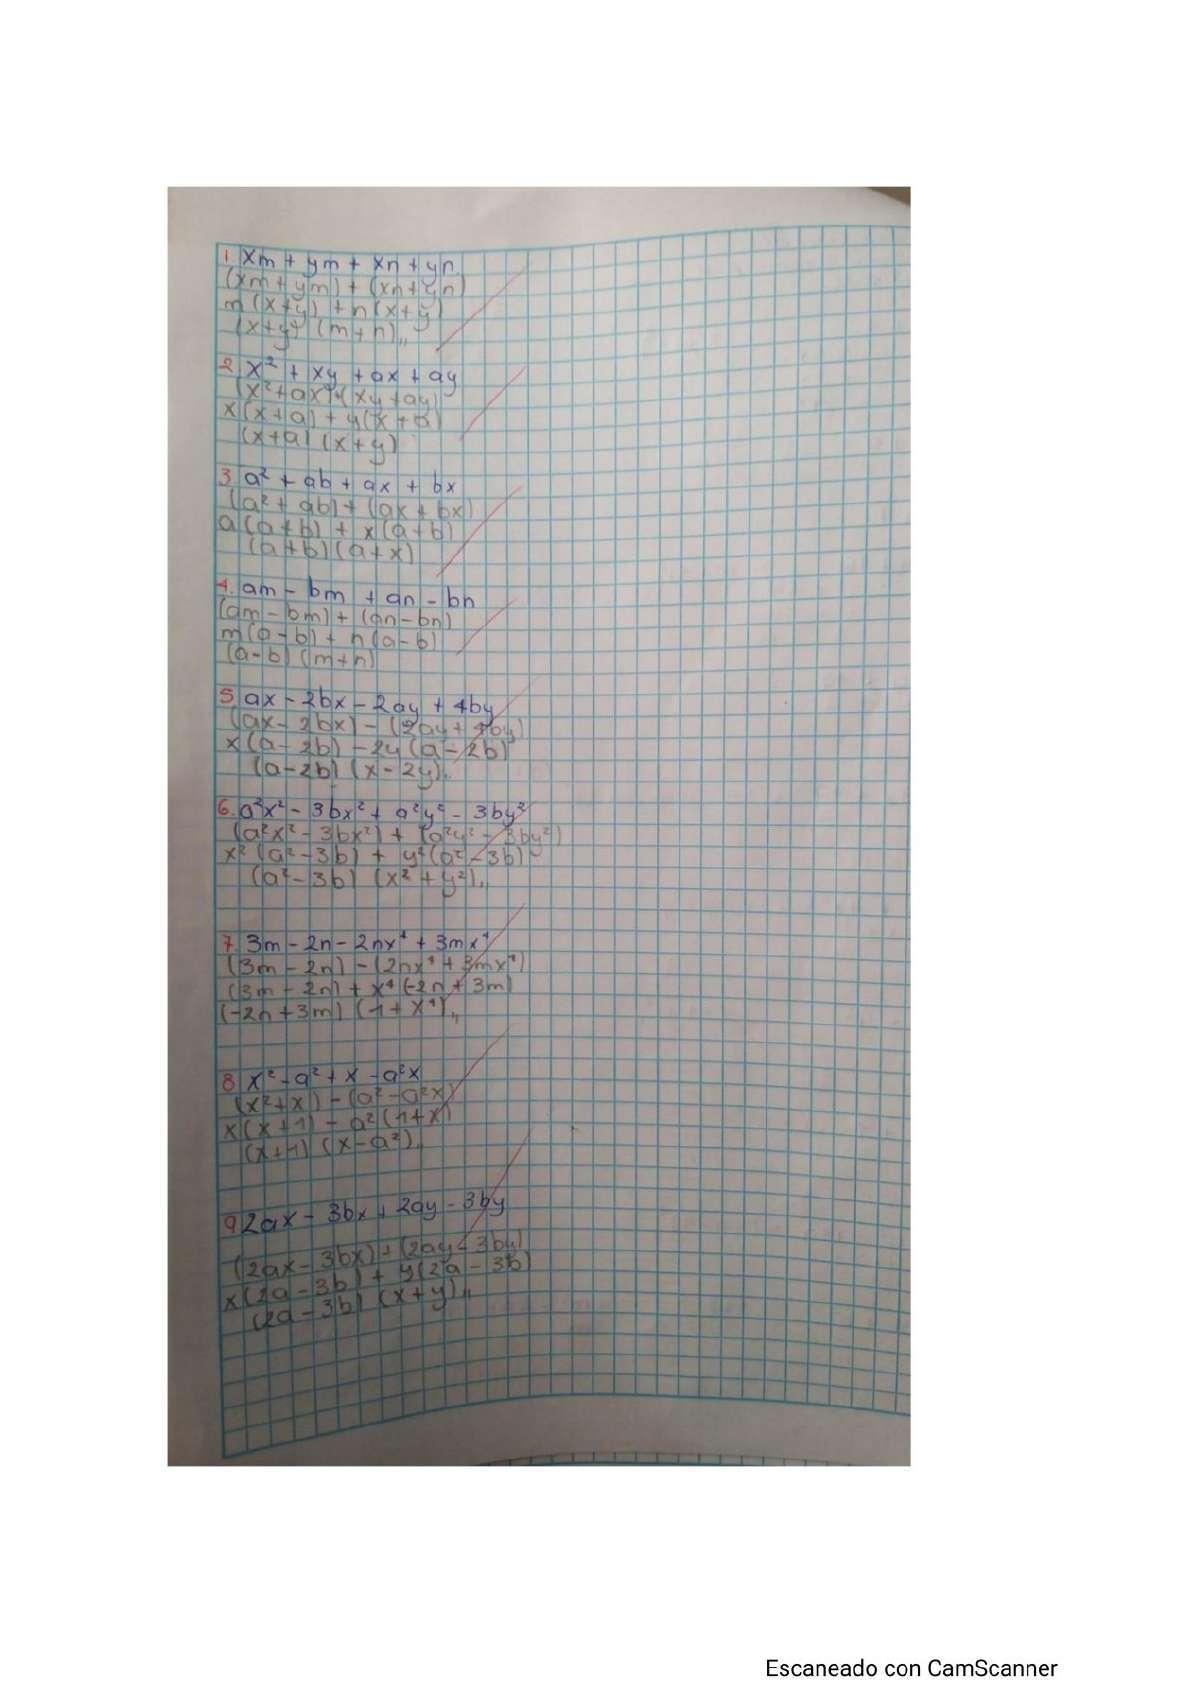 1. xm + ym + xn + yn
(xm + ym) + (xn + yn)
m (x+y) + n (x+y)
(x+y) (m+n),,
2. x² + xy + ax + ay
(x²+ax)+(xy+ay)
x(x+a) + y(x+a)
(x+a) (x+y)
3. a² + ab + ax + bx
(a² + ab) + (ax + bx)
a (a+b) + x(a+b)
(a+b) (a+x)
4. am - bm + an - bn
(am - bm) + (an-bn)
m(a-b) + n(a-b)
(a-b) (m+n)
5. ax - 2bx - 2ay + 4by
(ax - 2bx) - (2ay + 4by)
x(a - 2b) - 2y (a - 2b)
(a-2b) (x - 2y),,
6. a²x² - 3bx² + a²y² - 3by²
(a²x² - 3bx²) + (a²y² - 3by²)
x² (a² - 3b) + y² (a² - 3b)
(a² - 3b) (x² + y²),,
7. 3m - 2n - 2nx⁴ + 3mx⁴
(3m - 2n) - (2nx⁴ + 3mx⁴)
(3m - 2n) + x⁴ (-2n + 3m)
(-2n + 3m) (1 + x⁴),,
8 x² - a² + x - a²x
(x² + x) - (a² - a²x)
x(x+1) - a² (1+x)
(x+1) (x-a²),,
9 2ax - 3bx + 2ay - 3by
(2ax - 3bx) + (2ay - 3by)
x(2a - 3b) + y(2a - 3b)
(2a - 3b) (x+y),,
Escaneado con CamScanner